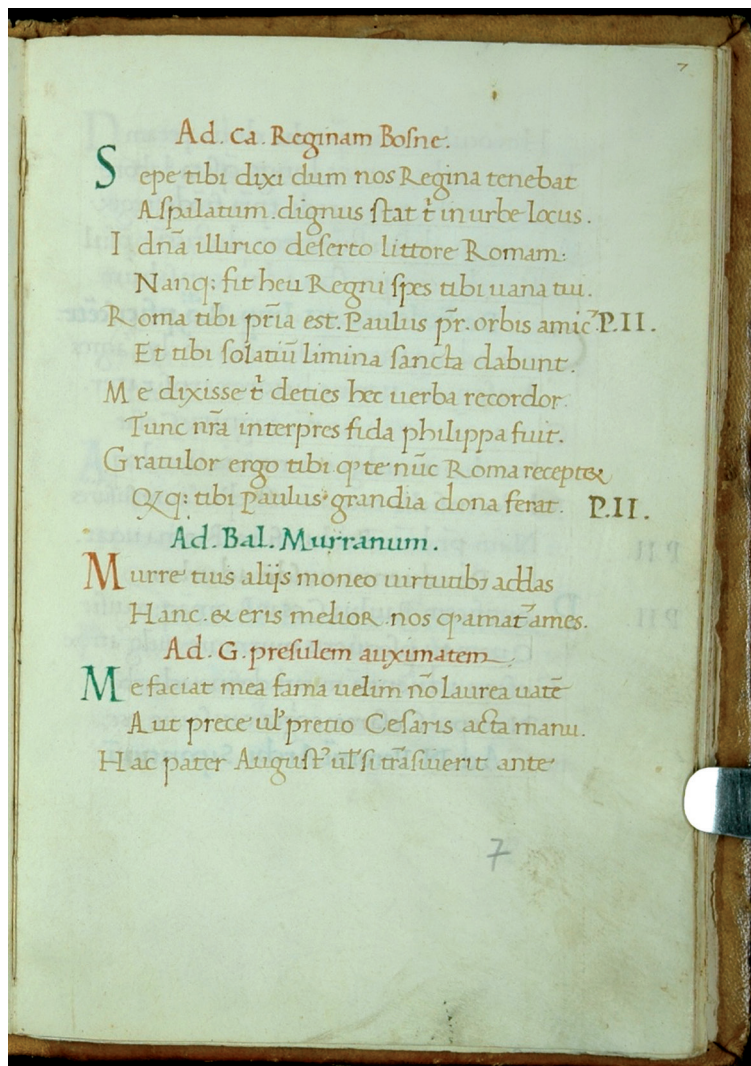 7
Ad. Ca. Reginam Bosne.
Sepe tibi dixi dum nos Regina tenebat
Aspalatum. dignus stat t̃ in urbe locus.
I dña illirico deserto littore Romam.
Nanq; fit heu Regni spes tibi uana tui.
Roma tibi pr̃ia est. Paulus pr̃. orbis amic᷒. P.II.
Et tibi solatiũ limina sancta dabunt.
Me dixisse t̃ deties hec uerba recordor.
Tunc nr̃a interpres fida philippa fuit.
Gratulor ergo tibi. ꝙ te nũc Roma receptet
Qꝗ; tibi Paulus grandia dona ferat. P.II.
Ad. Bal. Murranum.
Murre tuis alijs moneo uirtutibꝫ addas
Hanc. & eris melior. nos ꝙ amat̃ ames.
Ad. G. presulem auximatem
Me faciat mea fama uelim nõ laurea uatẽ
Aut prece ul̃ pretio Cesaris acta manu.
Hac pater August᷒ ul̃ si trãsiuerit ante
7